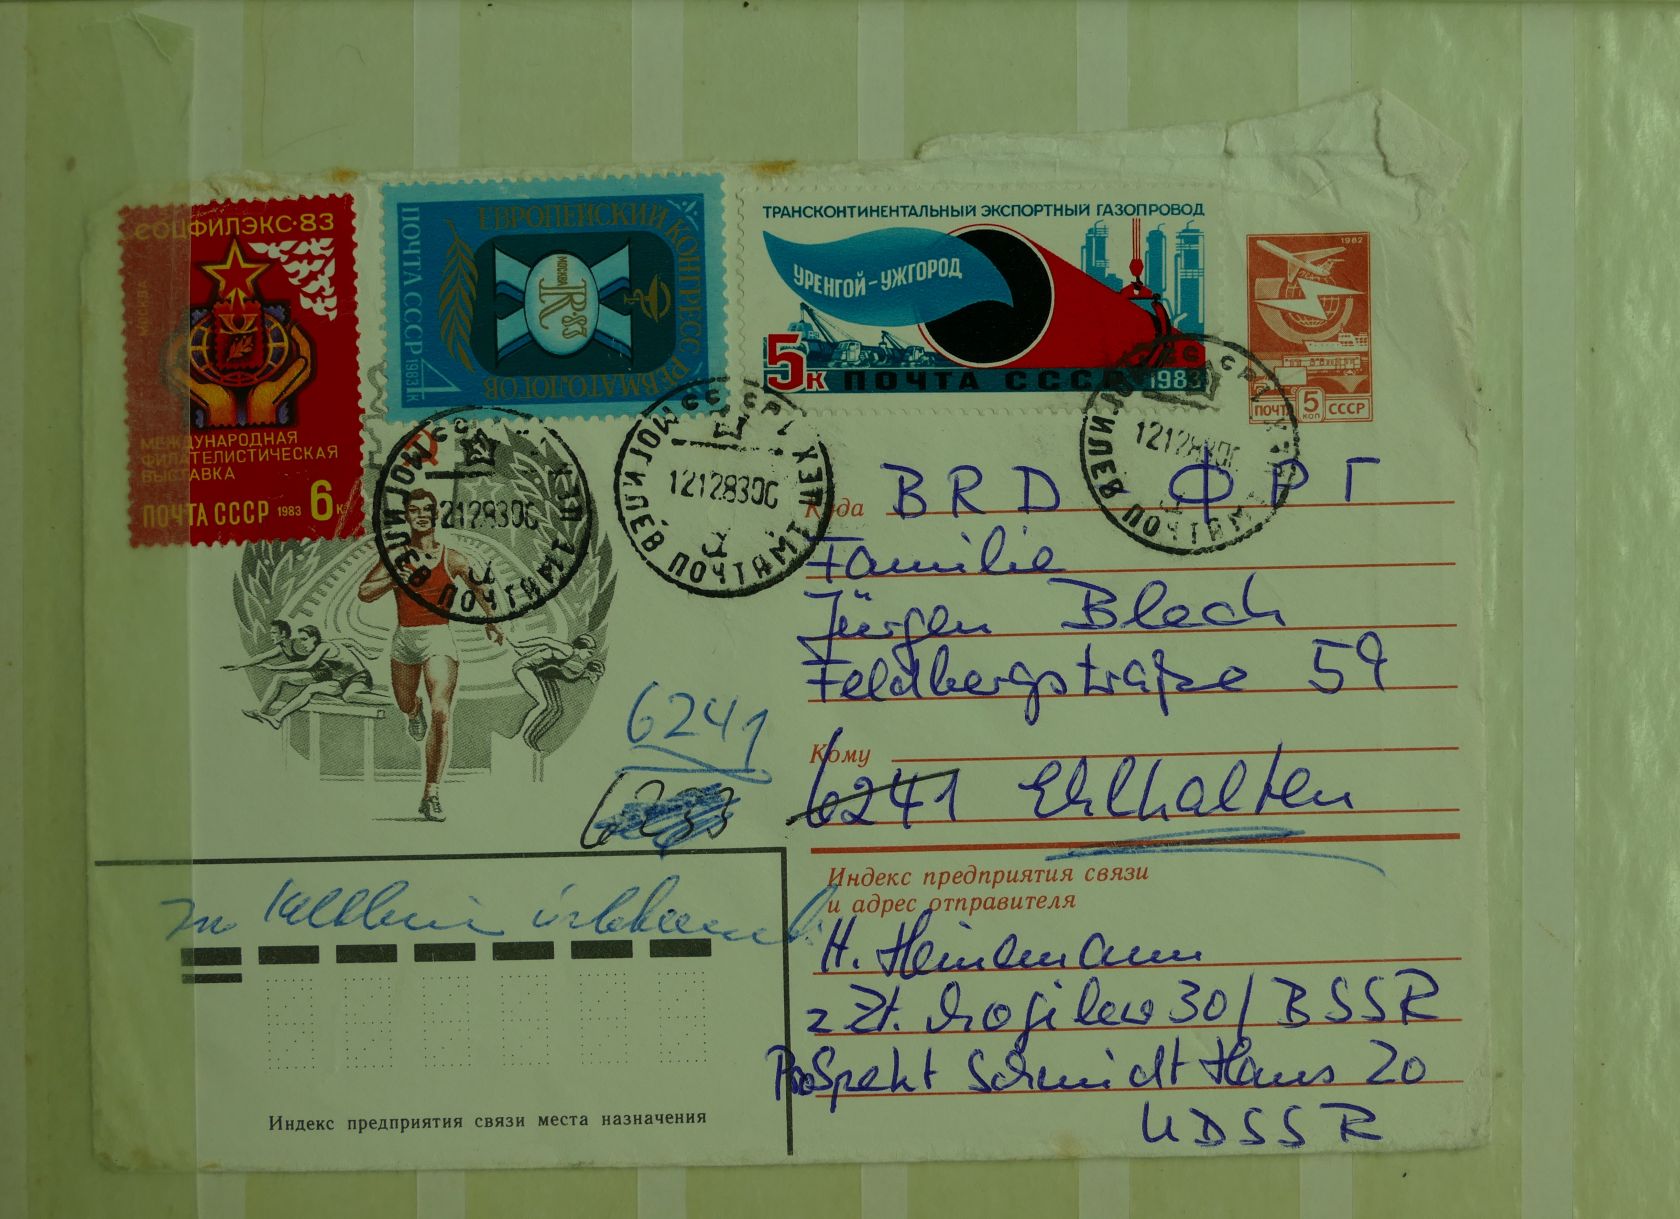 СОЦФИЛЭКС·83
МОСКВА
МЕЖДУНАРОДНАЯ
ФИЛАТЕЛИСТИЧЕСКАЯ
ВЫСТАВКА
ПОЧТА СССР 1983 6к
ЕВРОПЕЙСКИЙ КОНГРЕСС РЕВМАТОЛОГОВ
МОСКВА
R·83
ПОЧТА СССР 1983 4к
ТРАНСКОНТИНЕНТАЛЬНЫЙ ЭКСПОРТНЫЙ ГАЗОПРОВОД
УРЕНГОЙ-УЖГОРОД
5к ПОЧТА СССР 1983
1982
ПОЧТА 5 КОП СССР
МОГИЛЕВ ПОЧТАМТ
12128300
МОГИЛЕВ ПОЧТАМТ
12128300
МОГИЛЕВ ПОЧТАМТ
121283
Куда BRD ФРГ
Familie
Jürgen Blech
Feldbergstraße 59
Кому
6241 Ehlhalten
6241
6233
Индекс предприятия связи
и адрес отправителя
H. Heinemann
z Zt. Mogilew 30/BSSR
Prospekt Schmidt Haus 20
UDSSR
Индекс предприятия связи места назначения